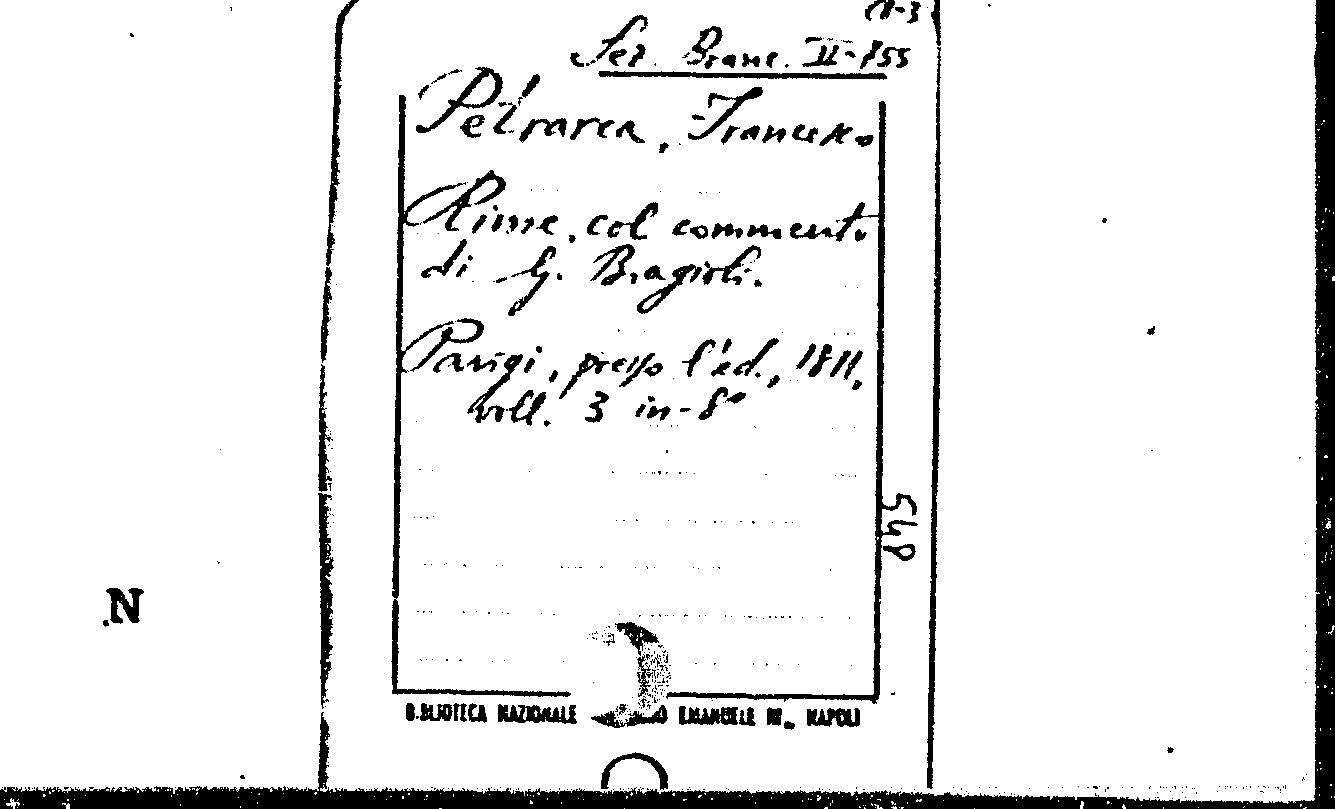 Sez. Branc. II-755
Petrarca, Francesco
Rime, col commento
di G. Biagioli.
Parigi, presso l'ed., 1811,
voll. 3 in-8°
548
N
BIBLIOTECA NAZIONALE EMANUELE III - NAPOLI